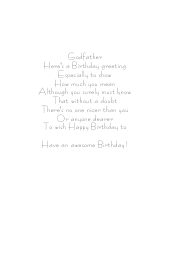 Godfather
Here's a Birthday greeting
Especially to show
How much you mean
Although you surely must know
That without a doubt
There's no one nicer than you
Or anyone dearer
To wish Happy Birthday to
Have an awesome Birthday!